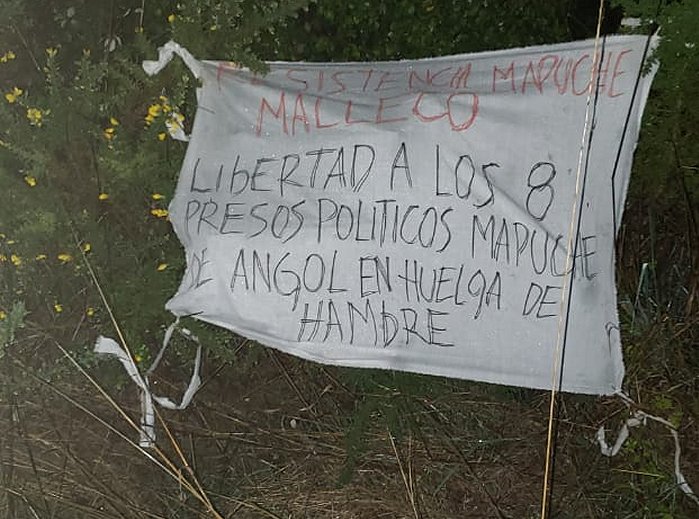 RESISTENCIA MAPUCHE
MALLECO
LIbERTAD A LOS 8
PRESOS POLITICOS MAPUCHE
DE ANGOL EN HUELGA DE
HAMbRE